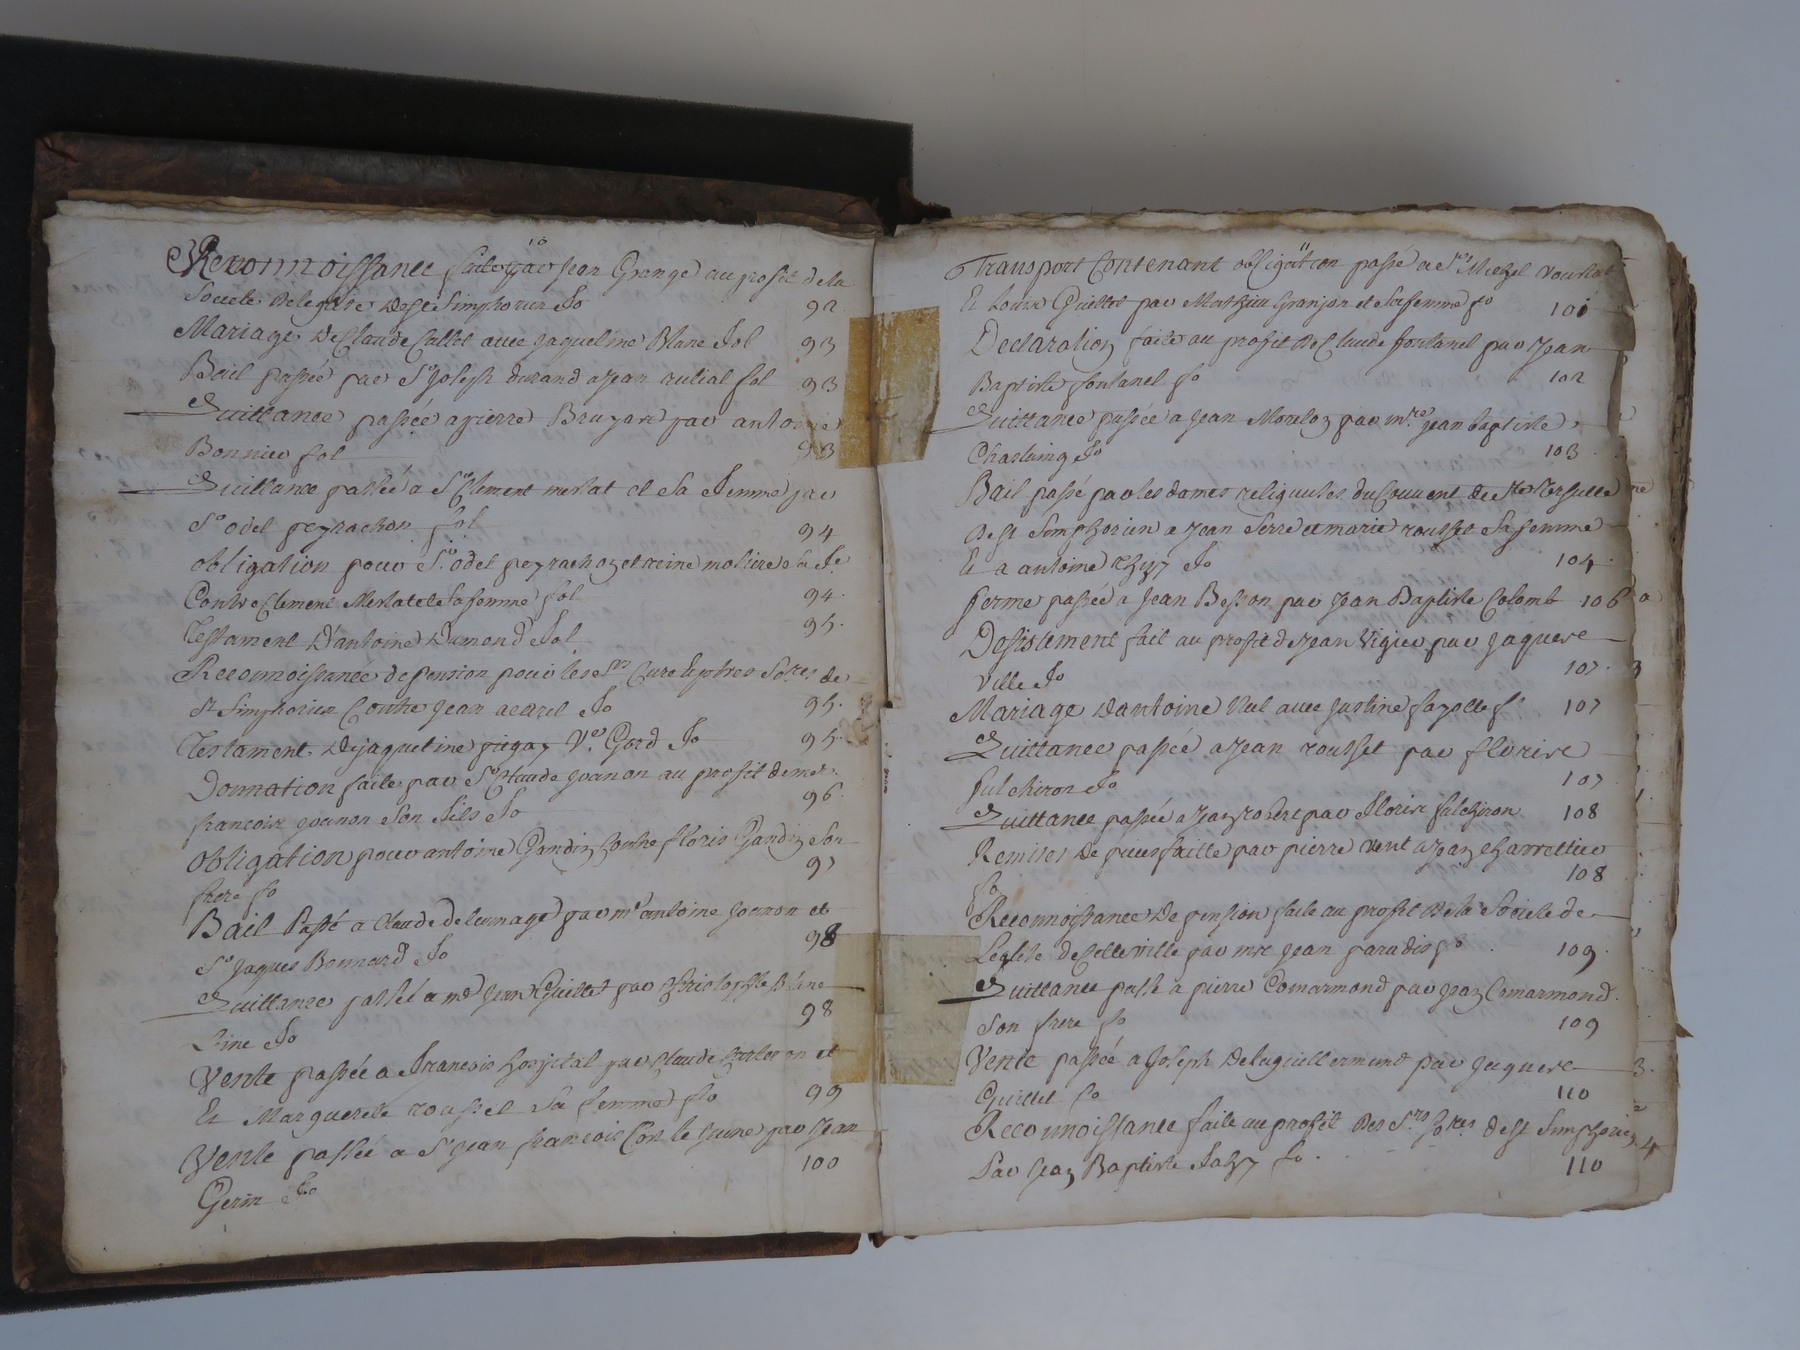 10
Reconnoissance faite par Jean Grange au profit de la
Societé de legise de St Simphorien fo 92
Mariage de Claude Callet avec Jaqueline Blanc fol 93
Bail passée par Sr Joseph durand a Jean rulial fol 93
Quittance passée a pierre Bruyan par antoine
Bonnier fol 93
Quittance passée a Sr Clement merlat et Sa femme par
Sr odel peyrachon fol 94
obligation pour Sr odel peyrachon et reine moliere sa fe
Contre Clement Merlat et Sa femme fol 94
Testament d'antoine Dumond fol 95
Reconnoissance de pension pour les Srs Cure et pbres Sotres de
St Simphorien Contre Jean acaril fo 95
Testament de jaqueline piegay Ve Gord fo 95
Donnation faite par Sr Claude Joanon au profit de mre
francois Joanon Son fils fo 96
obligation pour antoine Gandin Contre floris Gandin Son
frere fo 97
Bail Passé a Claude deleumage par mr antoine Joanon et
Sr Jaques Bonnard fo 98
Quittance passée a me Jean Guillet par Christophle
fo 98
Vente passée a francois hospital par Claude et
Et Marguerite roussel Sa femme fo 99
Vente passée a Sr Jean francois par Jean
Gerin fo 100
11
Transport Contenant obligation passé a Sr Michel
Et Louis Guillet par Mathieu Granjon et Sa femme fo 101
Declaration faite au profit de Claude fontanel par Jean
Baptiste fontanel fo 102
Quittance passée a Jean Moulon par mre Jean baptiste
fo 103
Bail passé par les dames religieuses du Couvent de Ste Vrsulle
de St Simphorien a Jean Serre et marie rousset Sa femme
Et a antoine fo 104
ferme passée a Jean Besson par Jean Baptiste Colomb 106
Desistement fait au profit de Jean Vigier par Jaques
Ville fo 107
Mariage dantoine Vial avec Justine fayolle fo 107
Quittance passée a Jean rousset par floris
fulchiron fo 107
Quittance passée a Jean par floris fulchiron 108
Remises de faitte par pierre Vent a Jean Charretier
fo 108
Reconnoissance de pension faite au profit de la Societe de
Leglise de Cette ville par mre Jean paradis fo 109
Quittance passé a pierre Comarmond par Jean Comarmond
Son frere fo 109
Vente passée a Joseph Delaguillermine par Jaques
Guillet fo 110
Reconnoissance faite au profit des Srs Sotres de St Simphorien
Par Jean Baptiste fo 110